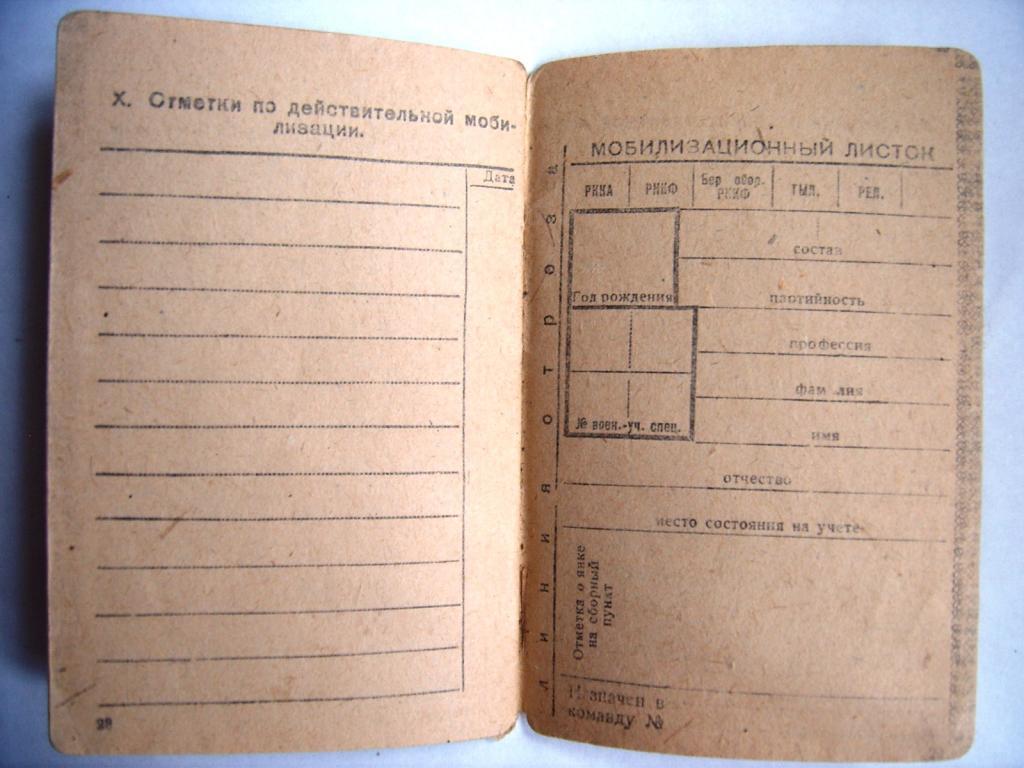 X. Отметки по действительной моби-
лизации.
Дата
28
линия отреза
МОБИЛИЗАЦИОННЫЙ ЛИСТОК
РККА РККФ Бер. обор. РККФ ТЫЛ. РЕЛ.
состав
Год рождения
партийность
профессия
фам лия
№ воен.-уч. спец.
имя
отчество
место состояния на учете
Отметка о явке
на сборный
пункт
Назначен в
команду №